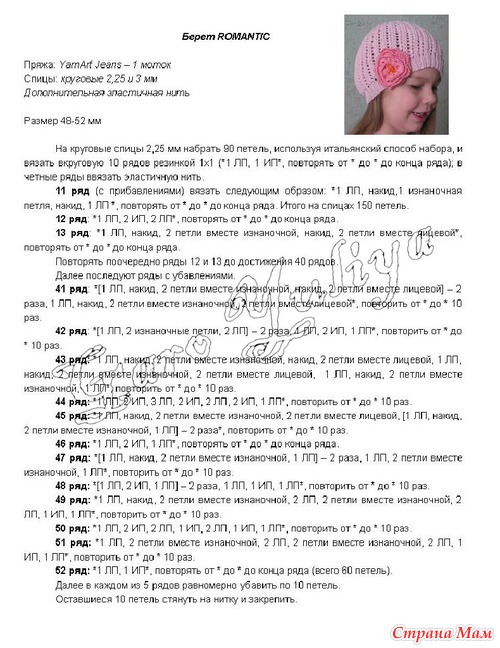 Берет ROMANTIC
Пряжа: YarnArt Jeans – 1 моток
Спицы: круговые 2,25 и 3 мм
Дополнительная эластичная нить
Размер 48-52 мм
На круговые спицы 2,25 мм набрать 90 петель, используя итальянский способ набора, и
вязать вкруговую 10 рядов резинкой 1х1 (*1 ЛП, 1 ИП*, повторять от * до * до конца ряда); в
четные ряды ввязать эластичную нить.
11 ряд (с прибавлениями) вязать следующим образом: *1 ЛП, накид,1 изнаночная
петля, накид, 1 ЛП* , повторять от * до * до конца ряда. Итого на спицах 150 петель.
12 ряд: *1 ЛП, 2 ИП, 2 ЛП*, повторять от * до * до конца ряда.
13 ряд: *1 ЛП, накид, 2 петли вместе изнаночной, накид, 2 петли вместе лицевой*,
повторять от * до * до конца ряда.
Повторять поочередно ряды 12 и 13 до достижения 40 рядов.
Далее последуют ряды с убавлениями.
41 ряд: *[1 ЛП, накид, 2 петли вместе изнаночной, накид, 2 петли вместе лицевой] – 2
раза, 1 ЛП, накид, 2 петли вместе изнаночной, 2 петли вместе лицевой*, повторить от * до * 10
раз.
42 ряд: *[1 ЛП, 2 изнаночные петли, 2 ЛП] – 2 раза, 1 ЛП, 2 ИП, 1 ЛП*, повторить от * до
* 10 раз.
43 ряд: *1 ЛП, накид, 2 петли вместе изнаночной, накид, 2 петли вместе лицевой, 1 ЛП,
накид, 2 петли вместе изнаночной, 2 петли вместе лицевой, 1 ЛП, накид, 2 петли вместе
изнаночной, 1 ЛП*, повторить от * до * 10 раз.
44 ряд: *1 ЛП, 2 ИП, 3 ЛП, 2 ИП, 2 ЛП, 2 ИП, 1 ЛП*, повторить от * до * 10 раз.
45 ряд: *1 ЛП, накид, 2 петли вместе изнаночной, 2 петли вместе лицевой, [1 ЛП, накид,
2 петли вместе изнаночной, 1 ЛП] – 2 раза*, повторить от * до * 10 раз.
46 ряд: *1 ЛП, 2 ИП, 1 ЛП*, повторять от * до * до конца ряда.
47 ряд: *[1 ЛП, накид, 2 петли вместе изнаночной, 1 ЛП] – 2 раза, 1 ЛП, 2 петли вместе
изнаночной, 1 ЛП*, повторить от * до * 10 раз.
48 ряд: *[1 ЛП, 2 ИП, 1 ЛП] – 2 раза, 1 ЛП, 1 ИП, 1 ЛП*, повторить от * до * 10 раз.
49 ряд: *1 ЛП, накид, 2 петли вместе изнаночной, 2 ЛП, 2 петли вместе изнаночной, 2
ЛП, 1 ИП, 1 ЛП*, повторить от * до * 10 раз.
50 ряд: *1 ЛП, 2 ИП, 2 ЛП, 1 ИП, 2 ЛП, 1 ИП, 1 ЛП*, повторить от * до * 10 раз.
51 ряд: *1 ЛП, 2 петли вместе изнаночной, 2 ЛП, 2 петли вместе изнаночной, 2 ЛП, 1
ИП, 1 ЛП*, повторить от * до * 10 раз.
52 ряд: *1 ЛП, 1 ИП*, повторять от * до * до конца ряда (всего 60 петель).
Далее в каждом из 5 рядов равномерно убавить по 10 петель.
Оставшиеся 10 петель стянуть на нитку и закрепить.
Garo Yuliya
Страна Мам